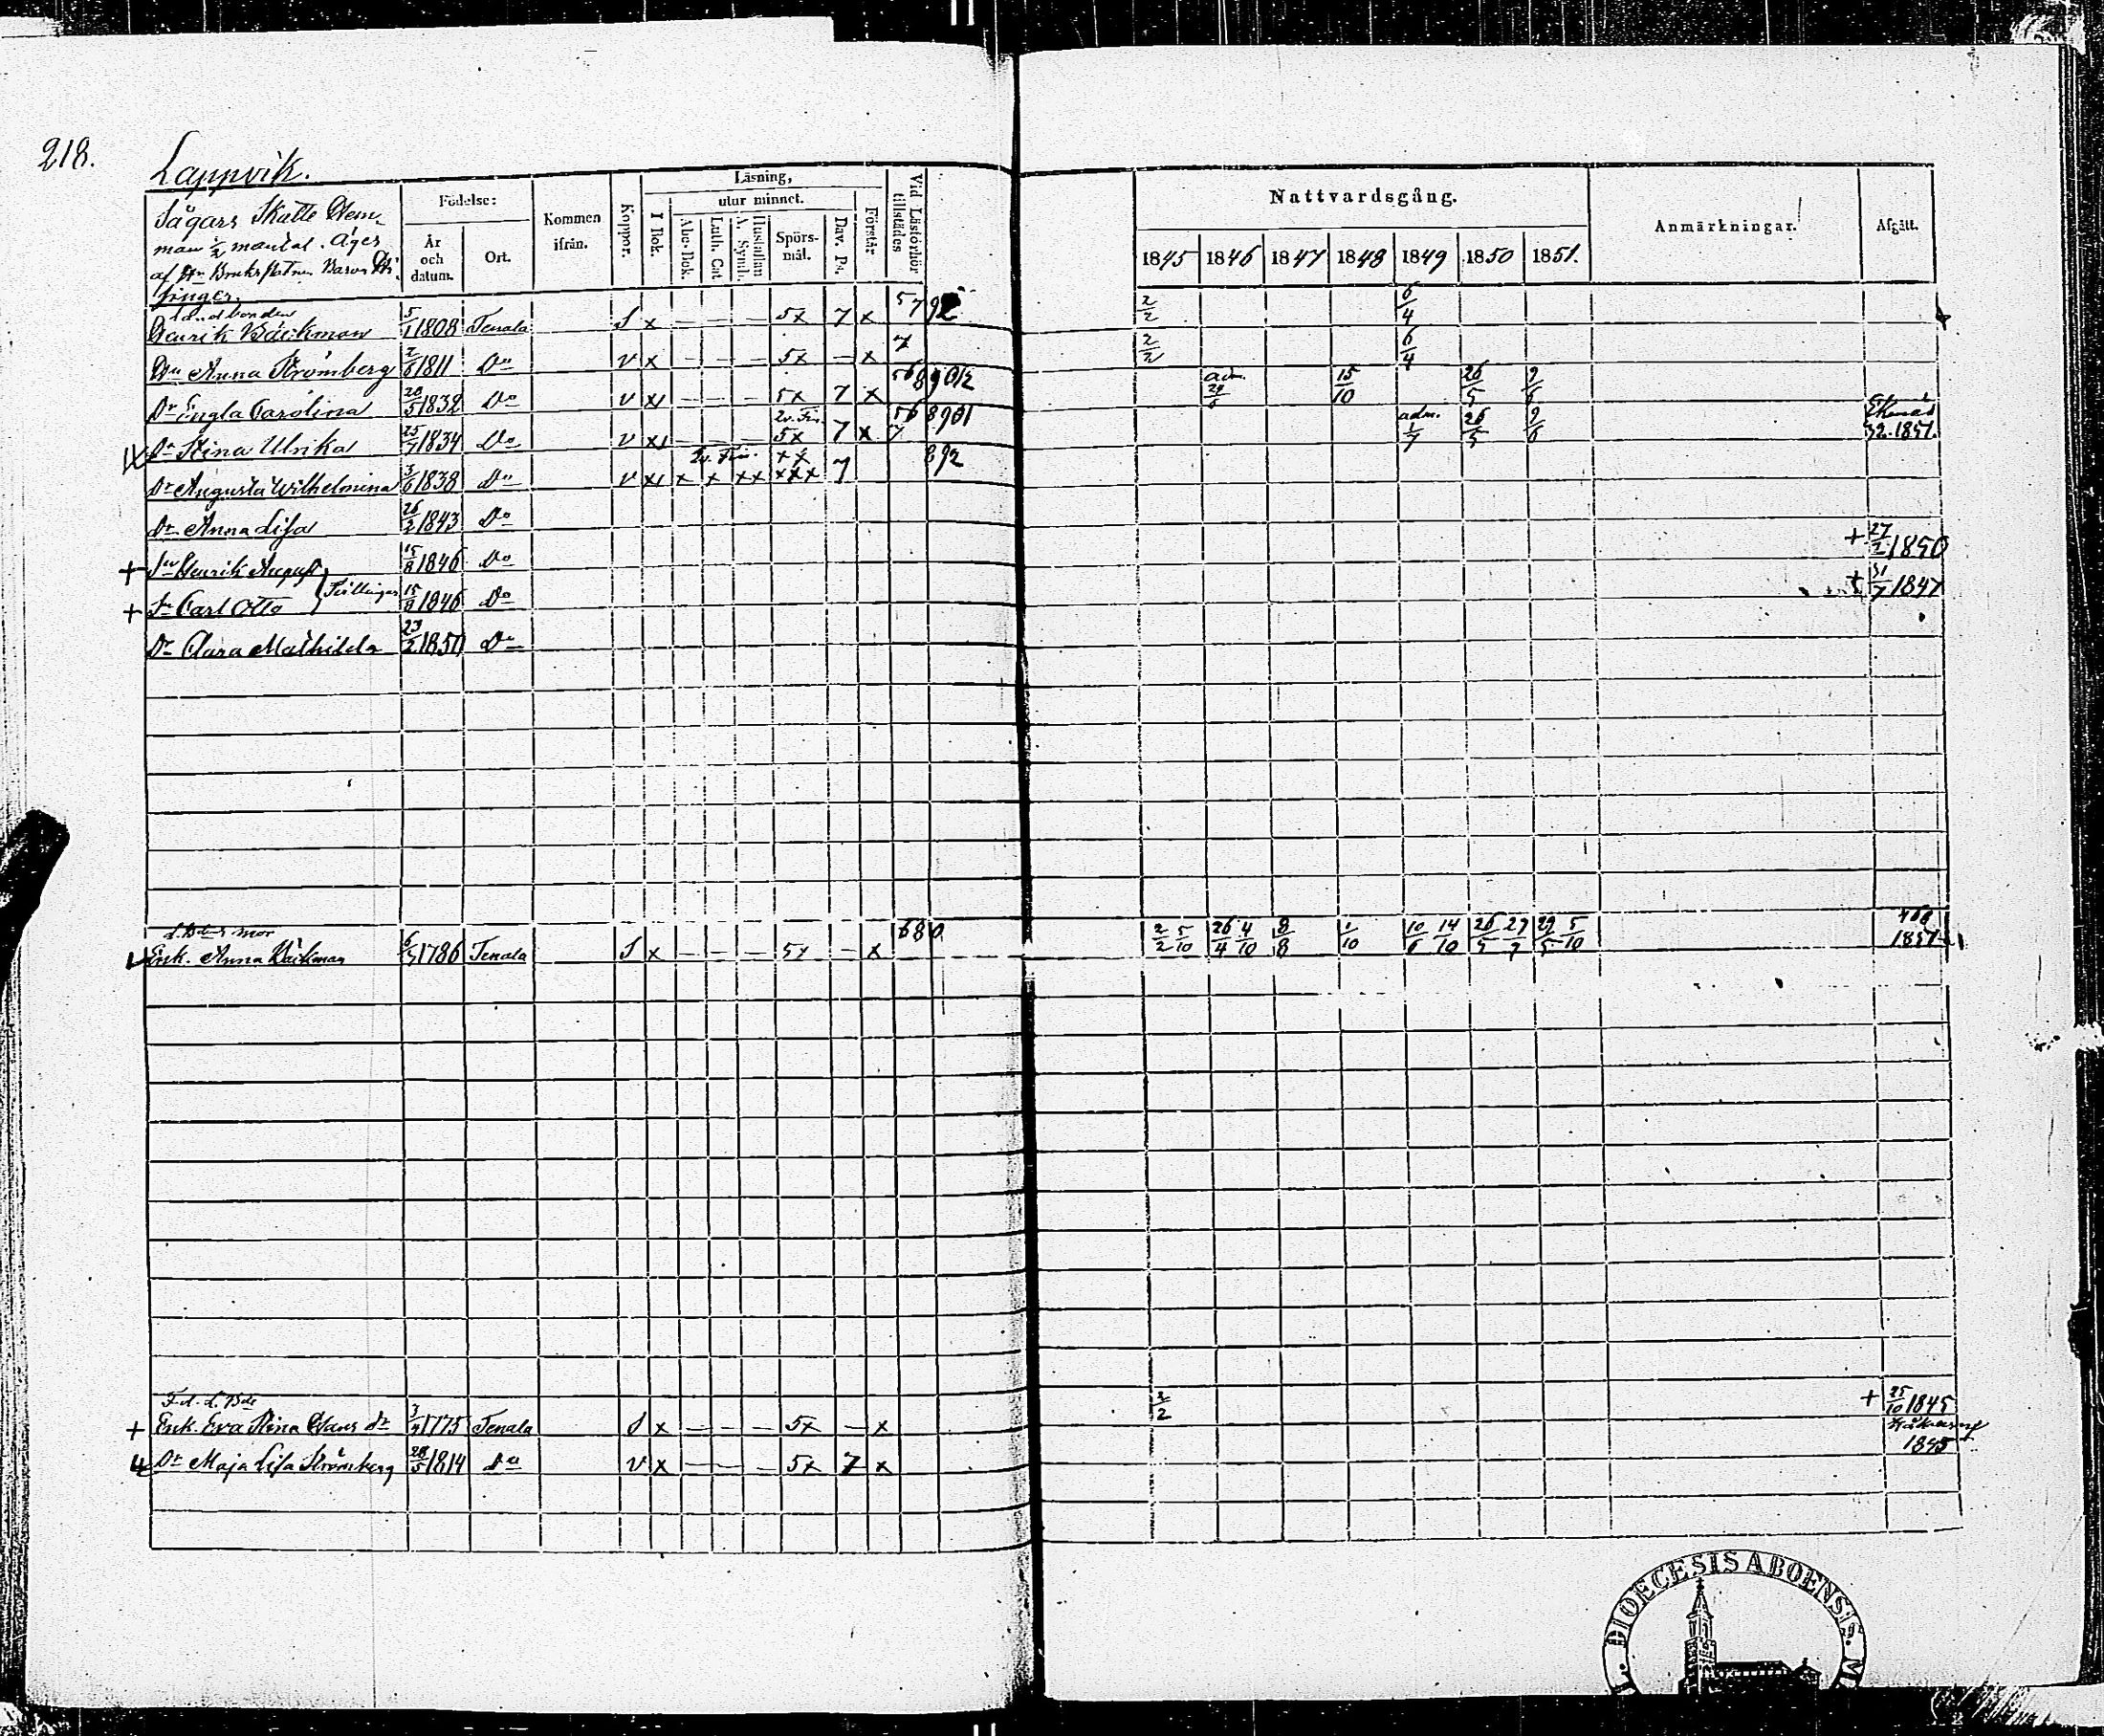 218.
Lappvik.
Sågars Skatte Hem-
man 1/2 mantal. Äges
af Hr Bruks Patron Baron Hi-
singer.
Födelse:
År och datum.
Ort.
Kommen ifrån.
Koppor.
Läsning,
I Bok.
utur minnet.
Abc-Bok.
Luth. Cat.
A. Symb.
Hustaflan
Spörs-mål.
Dav. Ps.
Förstår
Vid Läsförhör tillstädes
Nattvardsgång.
1845 1846 1847 1848 1849 1850 1851.
Anmärkningar.
Afgått.
Landbonden
Henrik Bäckman 5/1 1808 Tenala S x 5x 7 x 5 7 92 2/2 6/4
Hu Anna Strömberg 2/6 1811 Do v x — — — 5x — x 7 2/2 6/4
Dr Engla Carolina 20/5 1832 Do v xı — — — 5x 7 x 568 9012 adm. 15/10 26/5 9/6
Dr Stina Ulrika 25/7 1834 Do v xı — — — 5x 7 x 56 8901 7 adm. 1/7 26/5 9/6 Ekenäs 32. 1851.
Dr Augusta Wilhelmina 3/6 1838 Do v xı x x xx xxx 7 892
dr Anna Lisa 26/2 1843 Do
+ Sn Henrik August 15/8 1846 Do + 27/2 1850
Tvillingar
+ Sn Carl Otto 15/8 1846 Do + 31/7 1847
Dr Clara Mathilda 23/2 1850 Do
L. Bdens mor
Enk. Anna Bäckman 6/5 1786 Tenala S x — — — 5x — x 680 2/2 5/10 26/4 4/10 8/8 1/10 10/6 14/10 26/5 27/9 29/5 5/10 1851
F.d. L. Bde
+ Enk. Eva Stina Hans dr 3/4 1775 Tenala S x — — — 5x — x 2/2 + 25/10 1845
Dr Maja Lisa Strömberg 28/5 1814 do v x — — — 5x 7 x 1845
DIOECESIS ABOENSIS. M